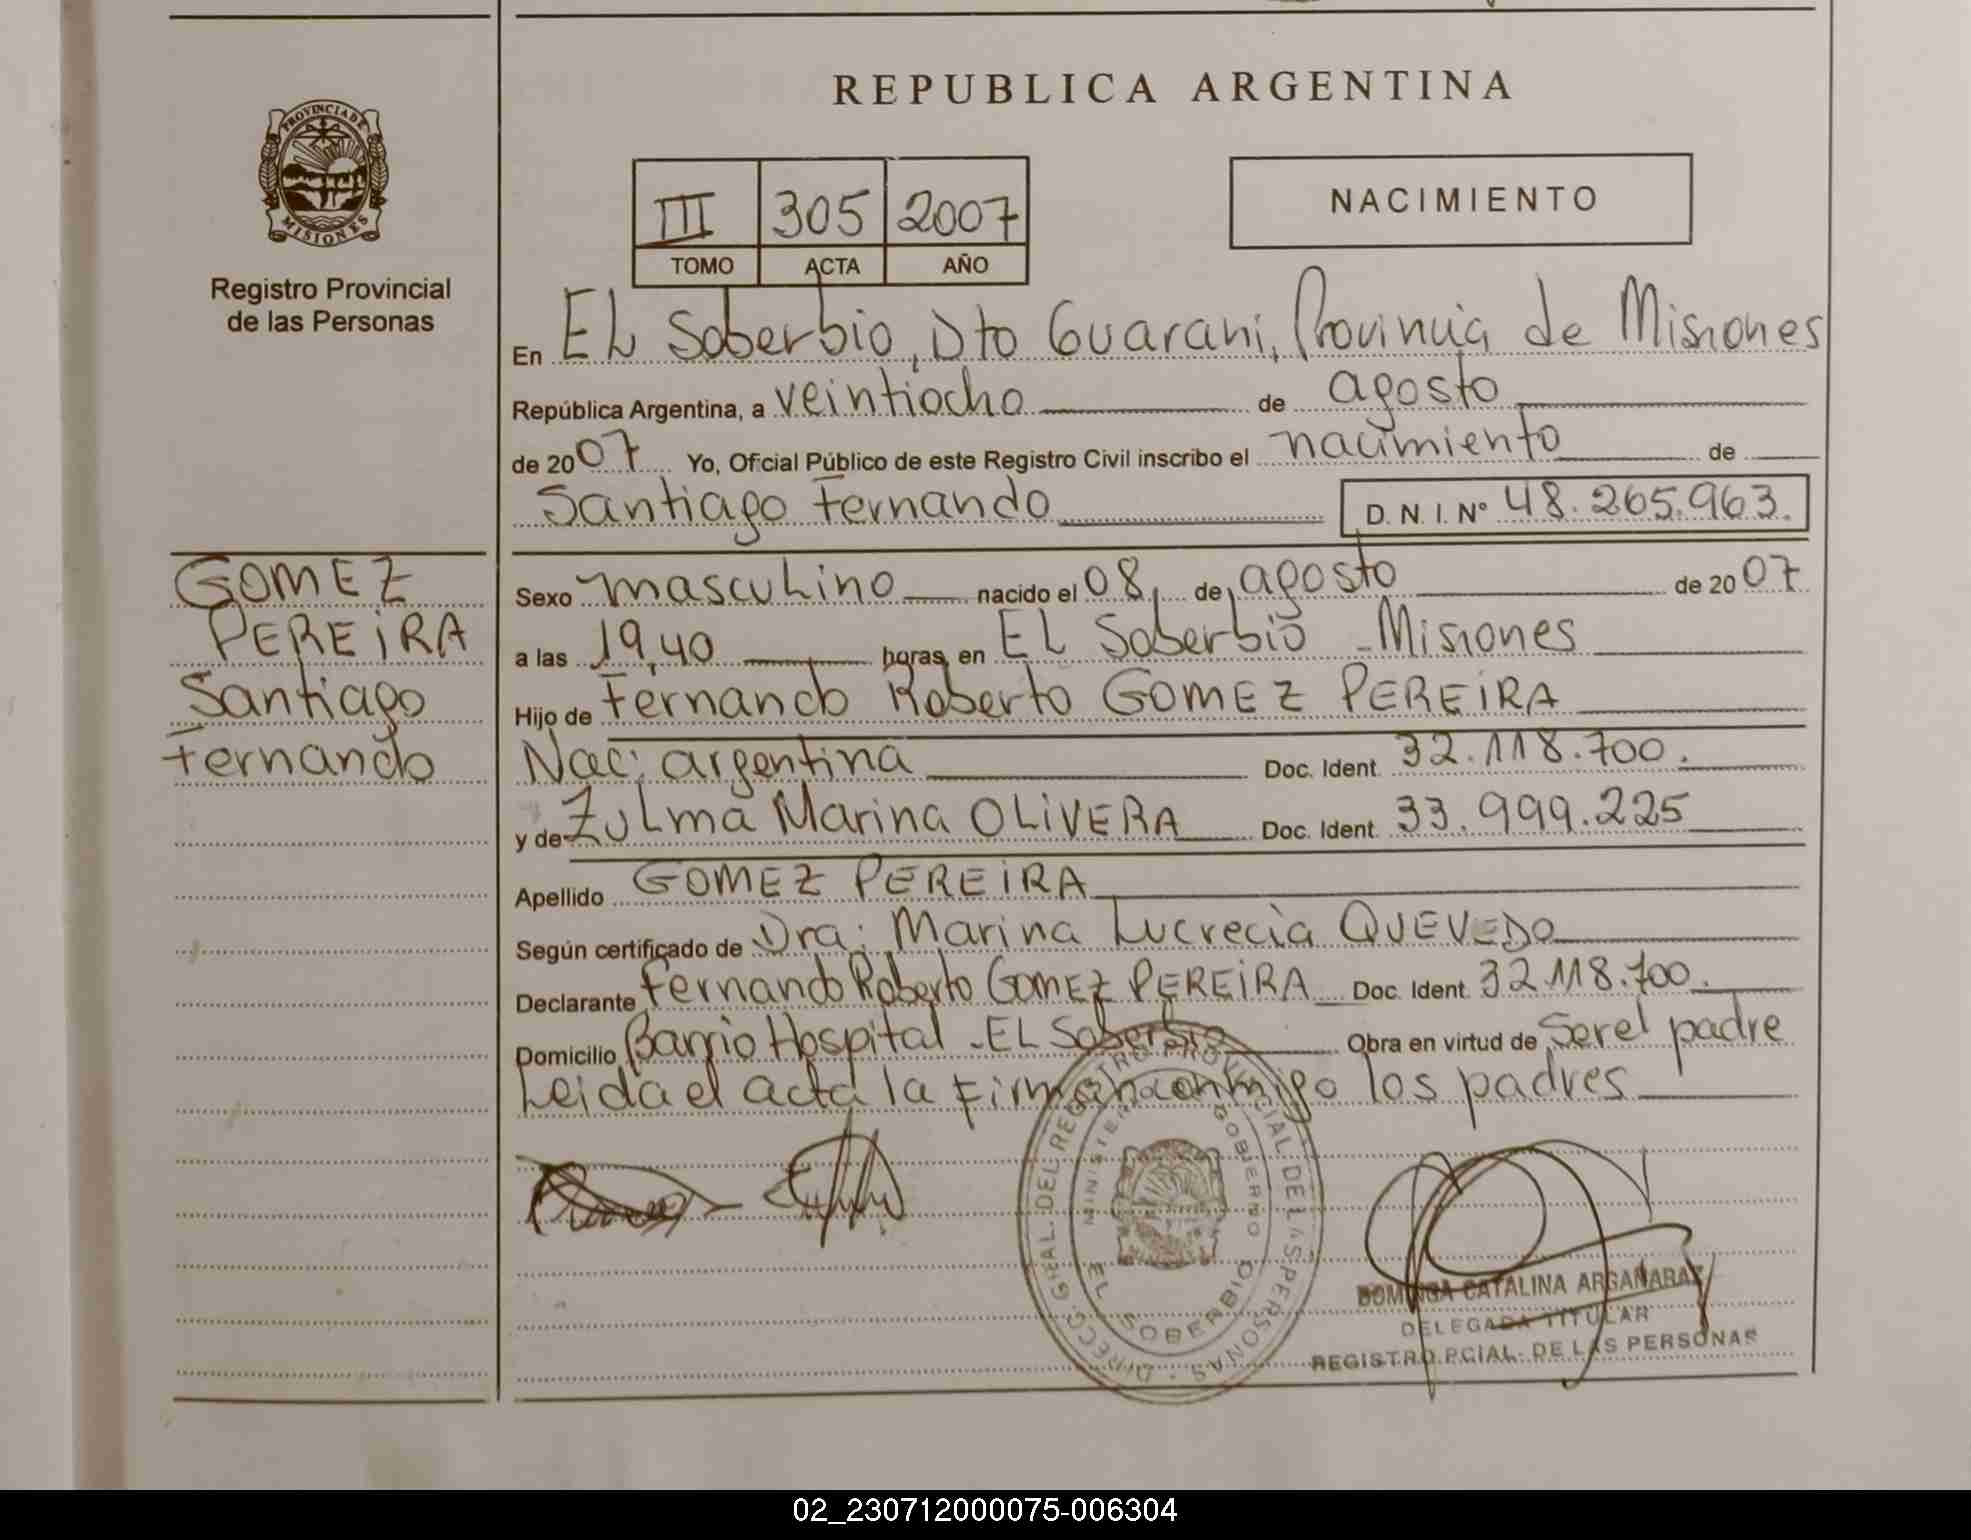 REPUBLICA ARGENTINA
PROVINCIA DE MISIONES
Registro Provincial
de las Personas
III 305 2007
TOMO ACTA AÑO
NACIMIENTO
En EL Soberbio, Dto Guarani, Provincia de Misiones
República Argentina, a veintiocho de agosto
de 2007 Yo, Oficial Público de este Registro Civil inscribo el nacimiento de
Santiago Fernando D. N. I. N° 48.265.963.
GOMEZ
PEREIRA
Santiago
Fernando
Sexo masculino nacido el 08 de agosto de 2007
a las 19,40 horas, en EL Soberbio - Misiones
Hijo de Fernando Roberto GOMEZ PEREIRA
Nac: argentina Doc. Ident. 32.118.700.
y de Zulma Marina OLIVERA Doc. Ident. 33.999.225
Apellido GOMEZ PEREIRA
Según certificado de Dra: Marina Lucrecia QUEVEDO
Declarante Fernando Roberto GOMEZ PEREIRA Doc. Ident. 32.118.700.
Domicilio Barrio Hospital - EL Soberbio Obra en virtud de Ser el padre
Leida el acta la Firman conmigo los padres
DIRECC. GRAL. DEL REGISTRO PROVINCIAL DE LAS PERSONAS
MINISTERIO GOBIERNO
EL SOBERBIO
DOMINGA CATALINA ARGAÑARAZ
DELEGADA TITULAR
REGISTRO PCIAL. DE LAS PERSONAS
02_230712000075-006304